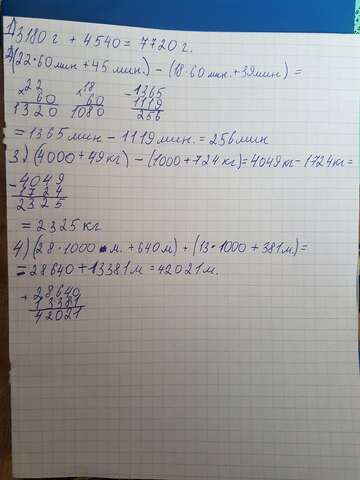 1) 3180 г + 4540 = 7720 г.
2) (22·60 мин + 45 мин.) - (18·60 мин + 39 мин) =
×22 ×18 -1365
60 60 1119
1320 1080 256
= 1365 мин - 1119 мин. = 256 мин
3) (4000 + 49 кг) - (1000 + 724 кг) = 4049 кг - 1724 кг =
-4049
1724
2325
= 2325 кг
4) (28·1000 м. + 640 м) + (13·1000 + 381 м) =
= 28640 + 13381 м = 42021 м.
+28640
13381
42021